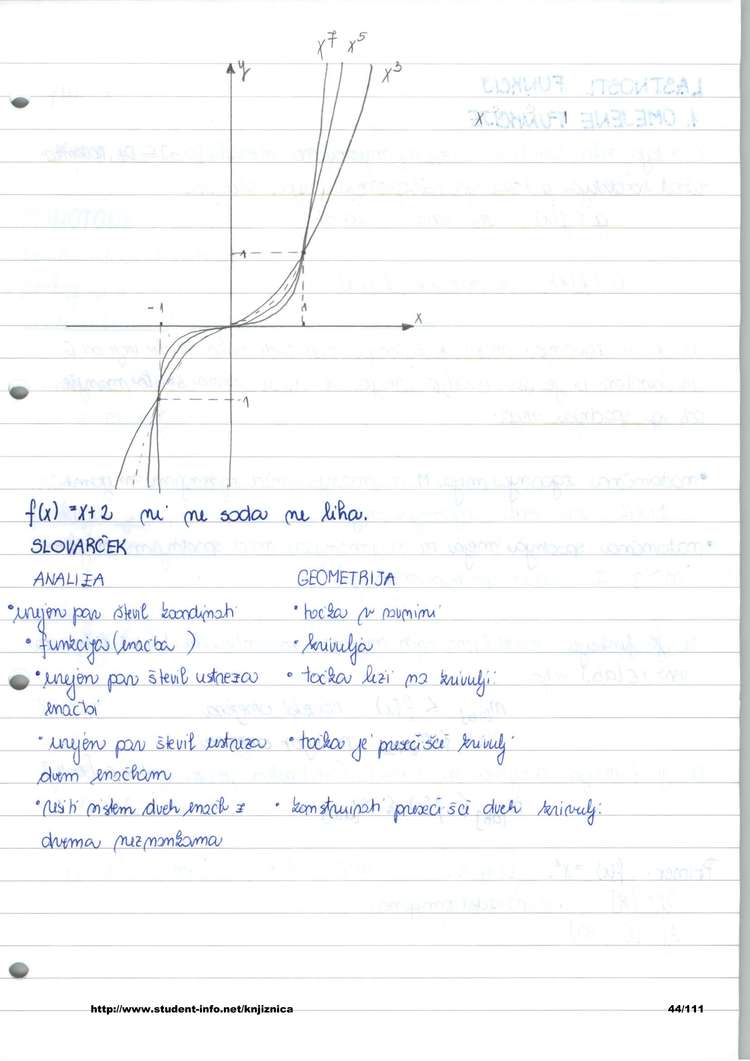 x⁷ x⁵ x³
y
1
-1 1 x
-1
f(x) = x+2 ni ne soda ne liha.
SLOVARČEK
ANALIZA GEOMETRIJA
• urejen par števil koordinati • točka v ravnini
• funkcija (enačba ) • krivulja
• urejen par števil ustreza • točka leži na krivulji
enačbi
• urejen par števil ustreza • točka je presečišče krivulj
dvem enačbam
• rešiti sistem dveh enačb z • konstruirati presečišči dveh krivulj
dvema neznankama
http://www.student-info.net/knjiznica 44/111